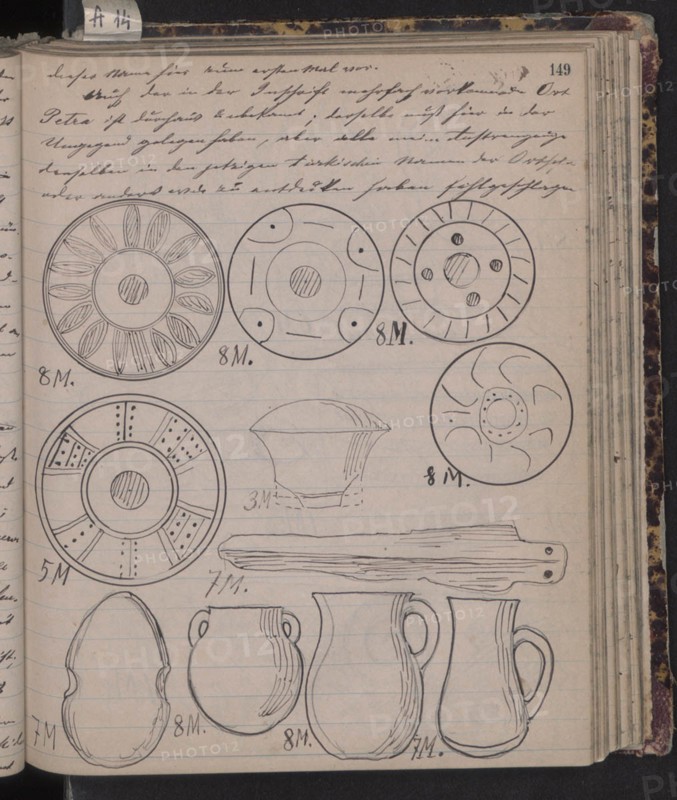 A 14
149
dieses Name hier zum ersten Mal vor.
Auch der in der Inschrift mehrfach vorkommende Ort
Petra ist durchaus unbekannt; derselbe muß hier in der
Umgegend gelegen haben, aber alle meine Anstrengungen
denselben in den jetzigen türkischen Namen der
oder anders wie zu entdecken haben fehlgeschlagen
8M.
8M.
8M.
8M.
5M
3M
7M.
7M
8M.
8M.
7M.
PHOTO12